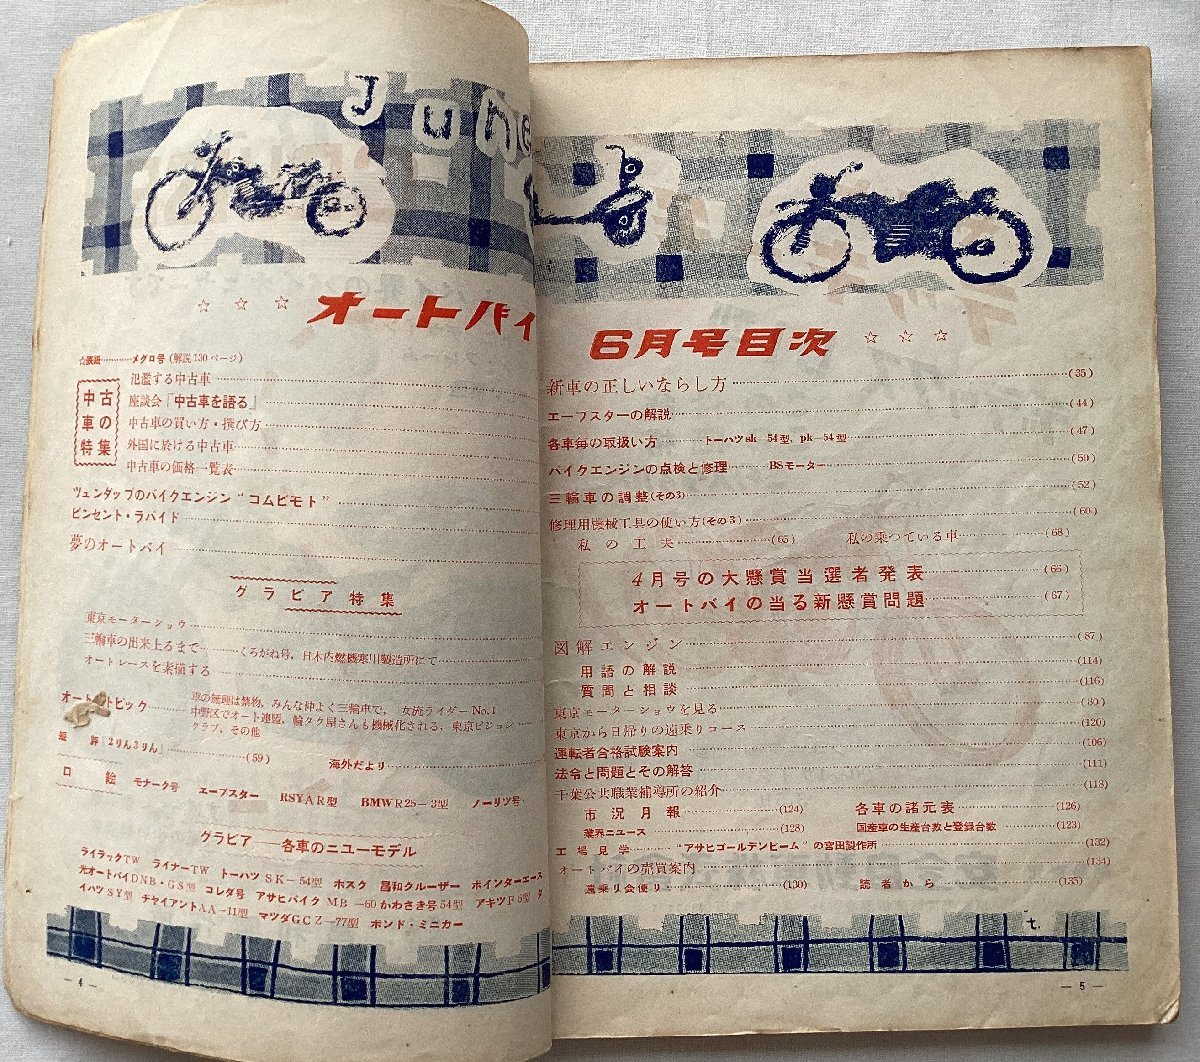 June
☆ ☆ ☆ オートバイ
☆表紙…………メグロ号 (解説130ページ)
中古車の特集
氾濫する中古車
座談会「中古車を語る」
中古車の買い方・撰び方
外国に於ける中古車
中古車の価格一覧表
ツュンダップのバイクエンジン“コムビモト”
ビンセント・ラパイド
夢のオートバイ
グラビア特集
東京モーターショウ
三輪車の出来上るまで………くろがね号, 日本内燃機寒川製造所にて
オートレースを素描する
トピック
車の無理は禁物, みんな仲よく三輪車で, 女流ライダーNo.1
中野区でオート連盟, 輪タク屋さんも機械化される, 東京ビジョン
クラブ, その他
短評「2りん3りん」……(59) 海外だより
口絵 モナーク号 エーブスター RSYAR型 BMWR25―3型 ノーリツ号
グラビア――各車のニユーモデル
ライラックTW ライナーTW トーハツSK―54型 ホスク 昌和クルーザー ポインターエース
光オートバイDNB・GS型 コレダ号 アサヒバイクMB―60 かわさき号54型 アキツF5型 ダ
イハツSY型 チャイアントAA―11型 マツダGCZ―77型 ボンド・ミニカー
― 4 ―
6月号目次 ☆ ☆ ☆
新車の正しいならし方……(35)
エーブスターの解説……(44)
各車毎の取扱い方……トーハツsk―54型, pk―54型……(47)
バイクエンジンの点検と修理……BSモーター……(50)
三輪車の調整(その3)……(52)
修理用機械工具の使い方(その3)……(60)
私の工夫……(65) 私の乗つている車……(68)
4月号の大懸賞当選者発表……(66)
オートバイの当る新懸賞問題……(67)
図解エンジン……(87)
用語の解説……(114)
質問と相談……(116)
東京モーターショウを見る……(80)
東京から日帰りの遠乗りコース……(120)
運転者合格試験案内……(106)
法令と問題とその解答……(111)
千葉公共職業補導所の紹介……(113)
市況月報……(124) 各車の諸元表……(126)
業界ニユース……(128) 国産車の生産台数と登録台数……(123)
工場見学……“アサヒゴールデンビーム”の宮田製作所……(132)
オートバイの売買案内……(134)
遠乗り会便り……(130) 読者から……(135)
t.
― 5 ―